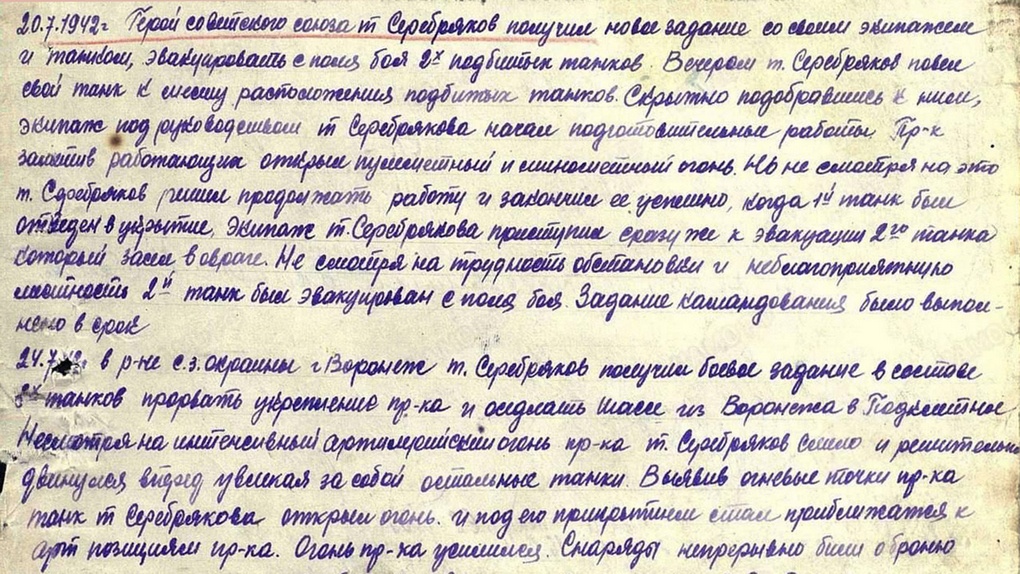 20.7.1942г Герой советского союза т Серебряков получил новое задание со своим экипажем
и танком, эвакуировать с поля боя 2х подбитых танков. Вечером т. Серебряков повел
свой танк к месту расположения подбитых танков. Скрытно подобравшись к ним,
экипаж под руководством т Серебрякова начал подготовительные работы. Пр-к
заметив работающих открыл пулеметный и минометный огонь. Но не смотря на это
т. Серебряков решил продолжать работу и закончил ее успешно, когда 1й танк был
отведен в укрытие, экипаж т. Серебрякова приступил сразу же к эвакуации 2го танка
который засел в овраге. Не смотря на трудность обстановки и неблагоприятную
местность 2й танк был эвакуирован с поля боя. Задание командования было выпол-
нено в срок
24.7 в р-не с.з. окраины г Воронеж т. Серебряков получил боевое задание в составе
3х танков прорвать укрепление пр-ка и оседлать шассе из Воронежа в Подклетное
Несмотря на интенсивный артилерийский огонь пр-ка т. Серебряков смело и решительно
двинулся вперед увлекая за собой остальные танки. Выявив огневые точки пр-ка
танк т Серебрякова открыл огонь. и под его прикрытием стал приближатся к
арт позициям пр-ка. Огонь пр-ка усилился. Снаряды непрерывно били о броню